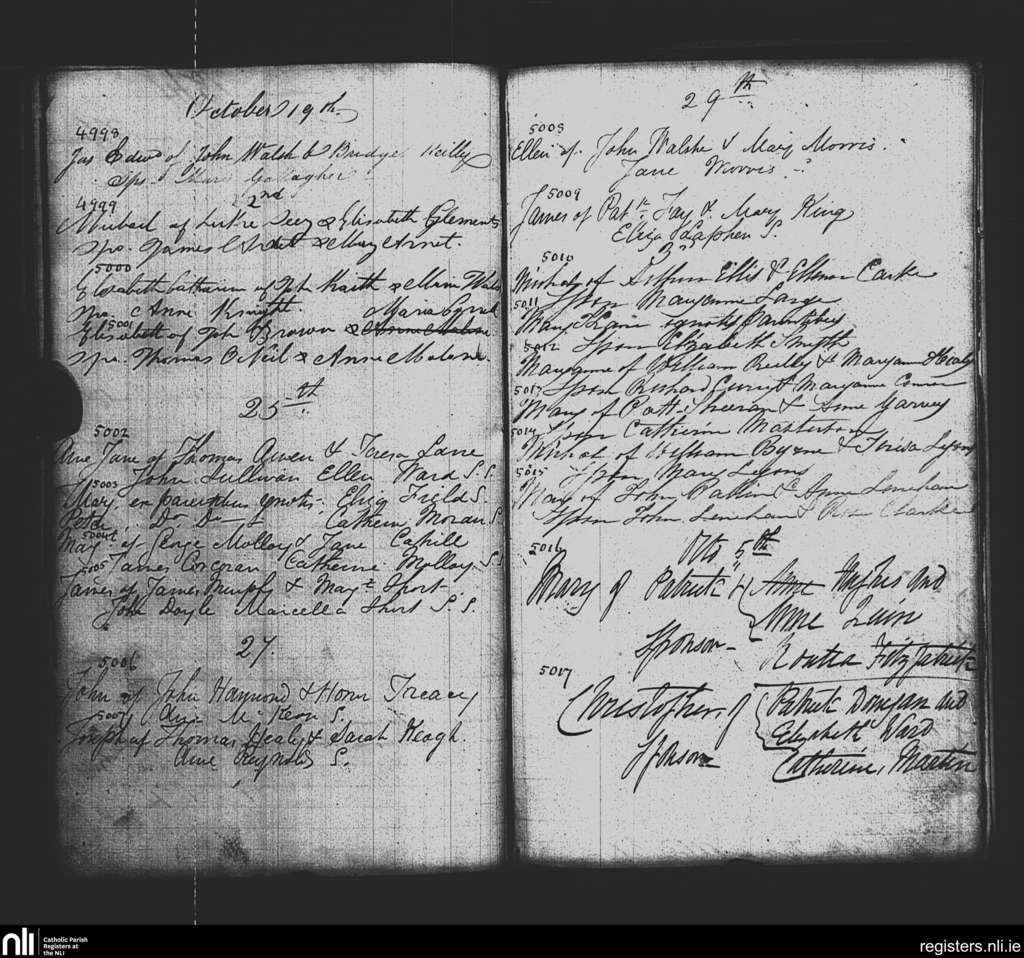 October 19th
4998
Jas Edwd of John Walsh & Bridget Reilly
Sps. Gallagher
2nd
4999
of Luke & Elisabeth Clements
Spo. James & Mary
5000
Elisabeth Catharin of Joh Keith & Maria
Spo. Anne Knight. Maria
5001
Elisabeth of Joh Brown &
Spo. Thomas O Neil & Anne Malone.
25th
5002
Jane of Thomas Owen & Teresa Lane
John Sullivan Ellen Ward S.S.
5003
Mary ex parentibus ignotis. Eliza Field S.
Peter. Do Do Cathern Moran S.
5004
Mary of George Molloy & Jane Cahill
James Corcran Catherine Molloy S.S
5005
James of James Murphy & Mary Short
John Doyle Marcella Short S.S.
27.
5006
John of John Haymond & Honor Treacy
Keon S.
5007
Joseph of Thomas Healy & Sarah Keogh.
Anne Reynolds S.
29th
5008
Ellen of John Walshe & Mary Morris.
Jane Morris
5009
James of Patk. Fay & Mary King
Eliza S.
5010
Michol of Ellis & Ellenor
5011 Spon Maryanne Large
Mary ignotis Parentibus
5012 Spon Elizabeth Smyth
Maryanne of William Reilly & Maryanne Healy
5013 Spon Richard & Maryanne Connor
Mary of Patt Sheeran & Anne Garvey
5014 Spon Catherine Masterson
Michol of William Byrne & Teresa Lyons
5015 Spon Mary Lyons
Mary of John & Anne Lenehan
Spon John Lenehan & Rose Clarke
5016
Octo 5th
Mary of Patrick Hughes and
Anne Quin
Sponsor Fitzpatrick
5017
Christopher of Patrick Donegan and
Elizabeth Ward
Sponsor Catherine Martin
nli
Catholic Parish
Registers at
the NLI
registers.nli.ie